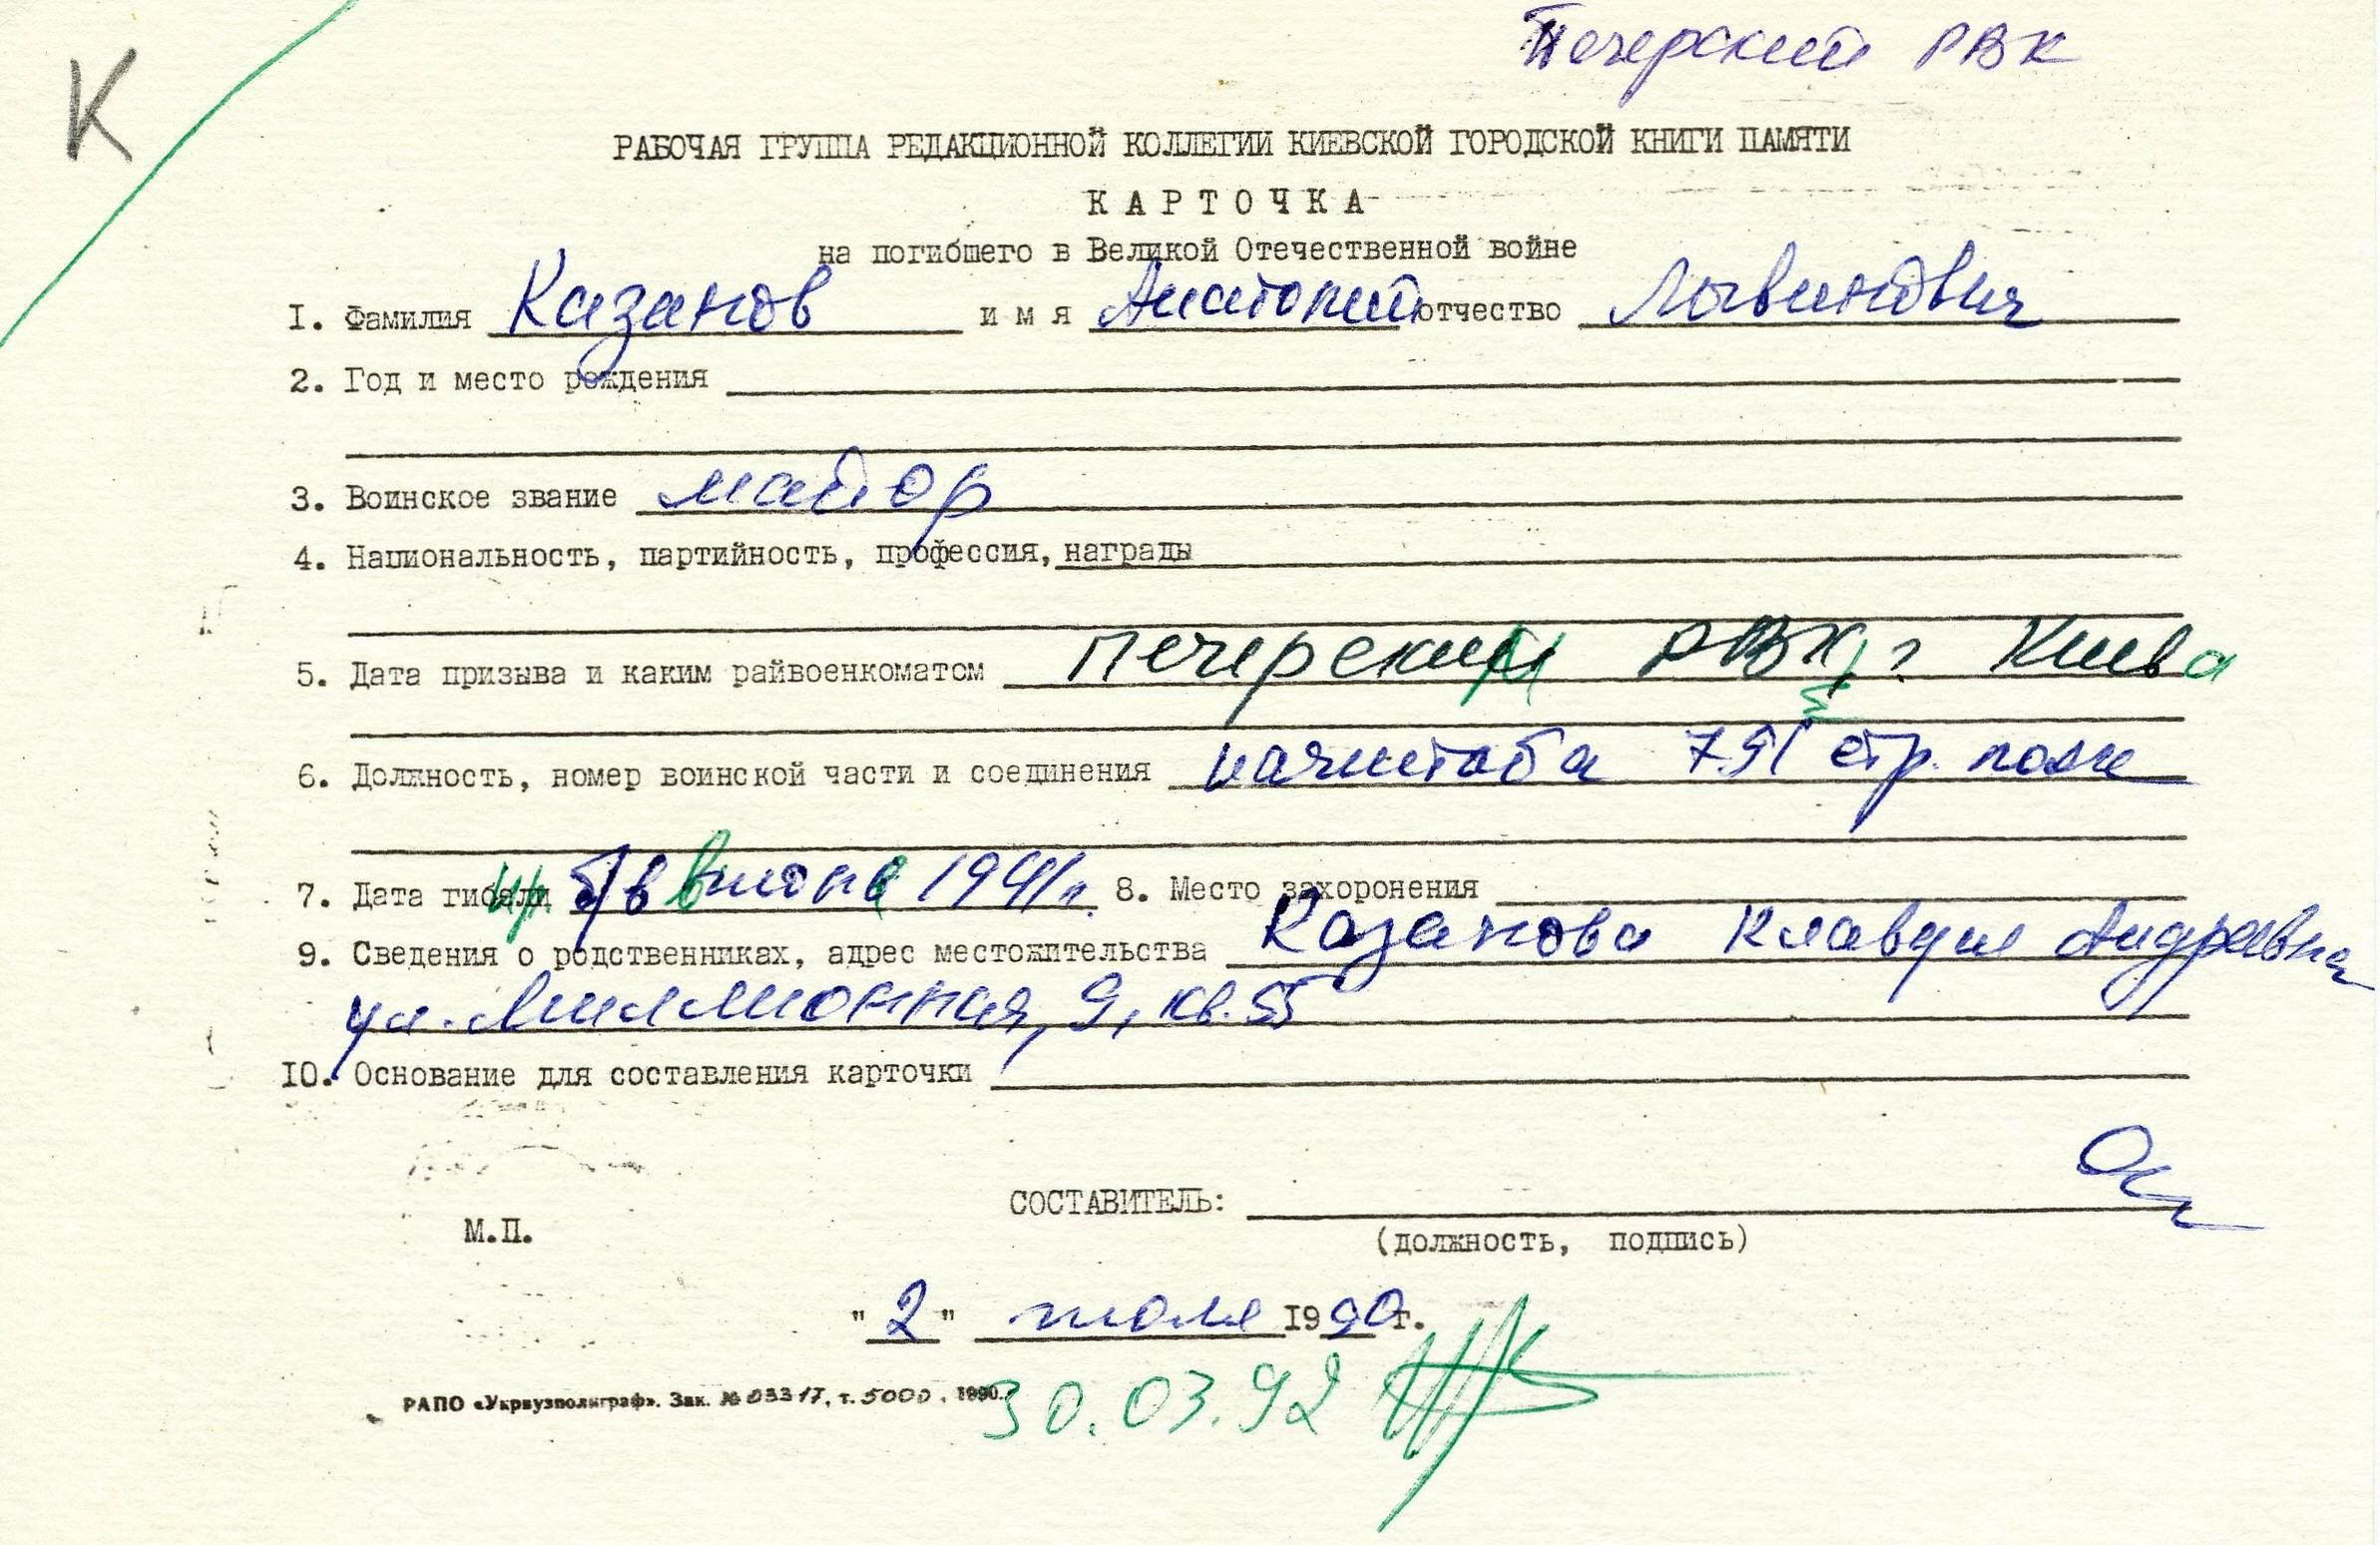 К
Печерский РВК
РАБОЧАЯ ГРУППА РЕДАКЦИОННОЙ КОЛЛЕГИИ КИЕВСКОЙ ГОРОДСКОЙ КНИГИ ПАМЯТИ
КАРТОЧКА
на погибшего в Великой Отечественной войне
I. Фамилия Казанов имя Анатолий отчество Лывинович
2. Год и место рождения
3. Воинское звание майор
4. Национальность, партийность, профессия, награды
5. Дата призыва и каким райвоенкоматом Печерским РВК г. Киева
6. Должность, номер воинской части и соединения начштаба 791 стр. полк
7. Дата гибели пр. б/в в июне 1941 г. 8. Место захоронения
9. Сведения о родственниках, адрес местожительства Казанова Клавдия Андреевна
ул. Миллионная, 9, кв. 55
10. Основание для составления карточки
СОСТАВИТЕЛЬ:
М.П.
(должность, подпись)
"2" июля 1990 г.
РАПО «Укрвузполиграф». Зак. № 03317, т. 5000. 1990.
30.03.92